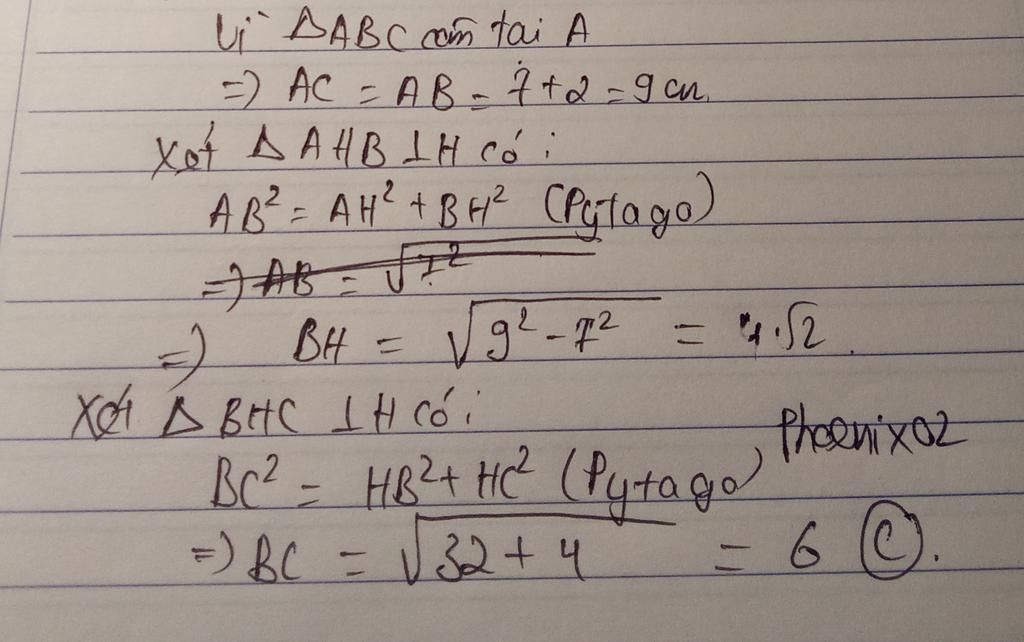 Vì ΔABC cân tại A
=) AC = AB = 7 + 2 = 9 cm.
Xét Δ AHB ⊥ H có:
AB² = AH² + BH² (Pytago)
=) AB = √7²
=) BH = √9² - 7² = 4.√2.
Xét Δ BHC ⊥ H có:
Phoenix02
BC² = HB² + HC² (Pytago)
=) BC = √32 + 4 = 6 (C).